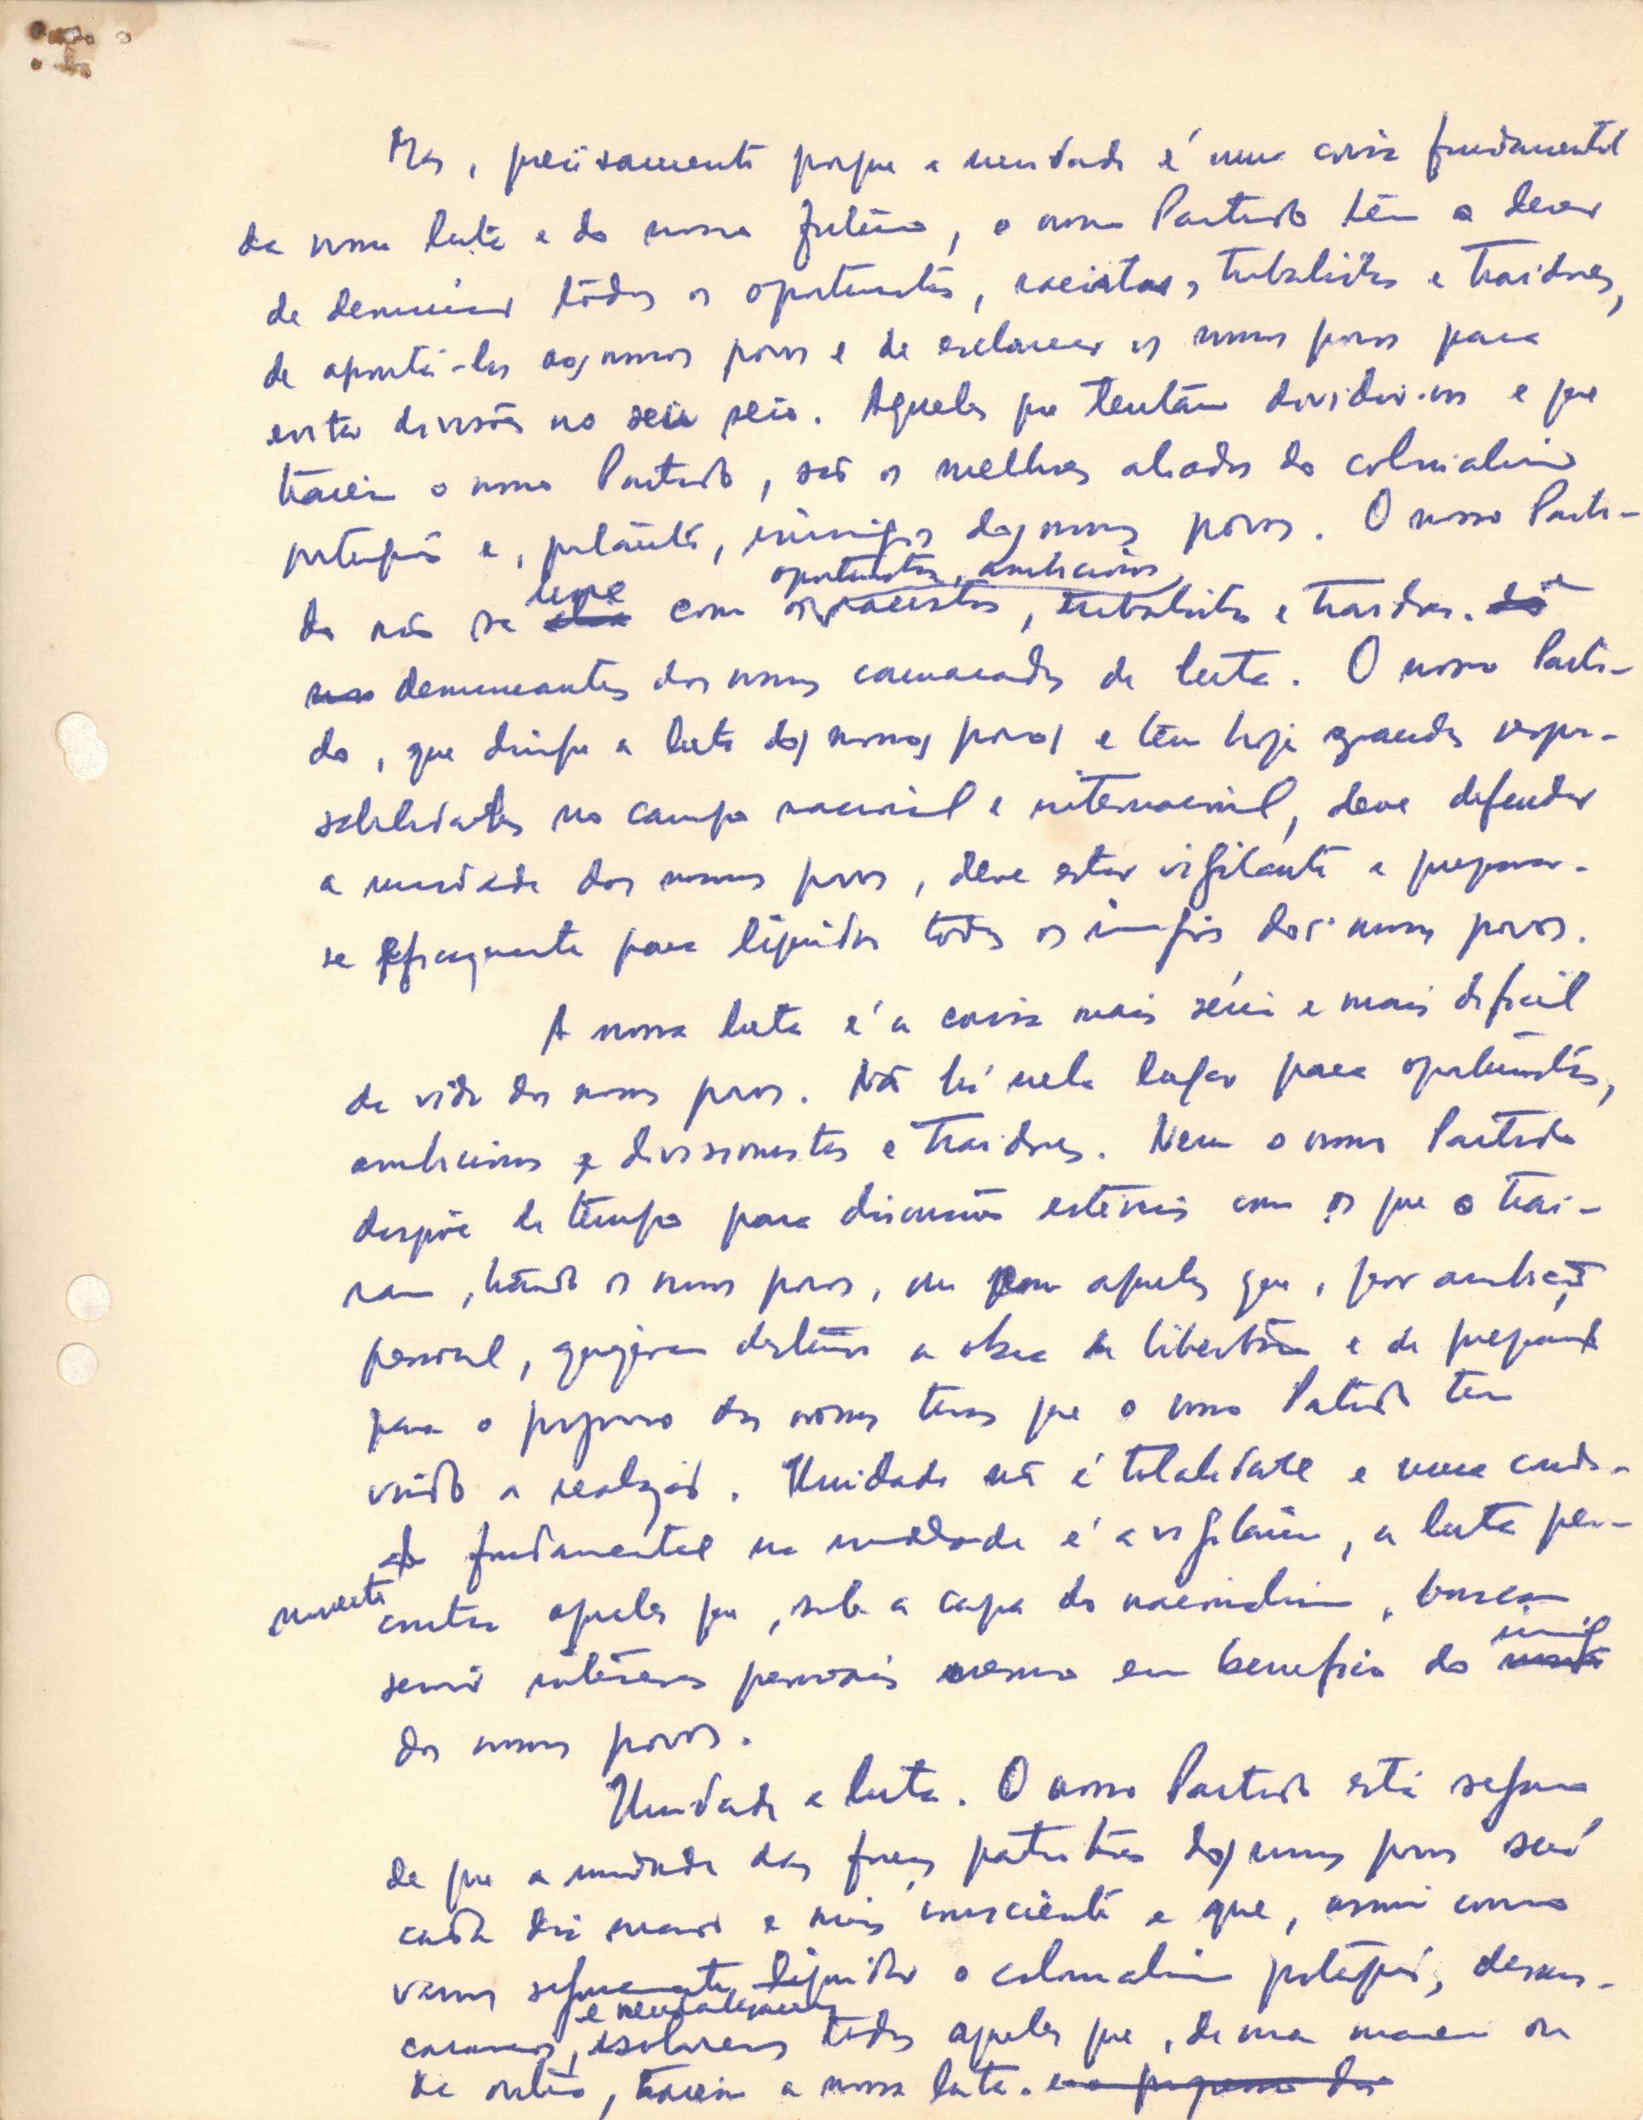 Mas, precisamente porque a unidade é uma coisa fundamental
da nossa luta e do nosso futuro, o nosso Partido têm o dever
de denunciar todos os oportunistas, racistas, tribalistas e traidores,
de apontá-los aos nossos povos e de esclarecer os nossos povos para
evitar divisões no seu seio. Aqueles que tentam dividir-nos e que
traem o nosso Partido, são os melhores aliados do colonialismo
português e, portanto, inimigos dos nossos povos. O nosso Parti-
une oportunistas, ambiciosos,
do não se com os racistas, tribalistas e traidores.
denunciantes dos nossos camaradas de luta. O nosso Parti-
do, que dirige a luta dos nossos povos e têm hoje grandes respon-
sabilidades no campo nacional e internacional, deve defender
a unidade dos nossos povos, deve estar vigilante e preparar-
se eficazmente para liquidar todos os inimigos dos nossos povos.
A nossa luta é a coisa mais séria e mais difícil
da vida dos nossos povos. Não há nela lugar para oportunistas,
ambiciosos e divisionistas e traidores. Nem o nosso Partido
dispõe de tempo para discussões estéreis com os que o traí-
ram, traindo os nossos povos, ou com aqueles que, por ambição
pessoal, queiram destruir a obra de libertação e de preparação
para o progresso das nossas terras que o nosso Partido tem
vindo a realizar. Unidade não é totalidade e uma condi-
ção fundamental na unidade é a vigilância, a luta per-
manente contra aqueles que, sob a capa do nacionalismo, buscam
servir interesses pessoais mesmo em benefício do inimigo
dos nossos povos.
Unidade e luta. O nosso Partido está seguro
de que a unidade das forças patrióticas dos nossos povos será
cada dia maior e mais consciente e que, assim como
vamos seguramente liquidar o colonialismo português, desmas-
e neutralizaremos
cararemos, isolaremos todos aqueles que, de uma maneira ou
de outra, traem a nossa luta. e o progresso dos